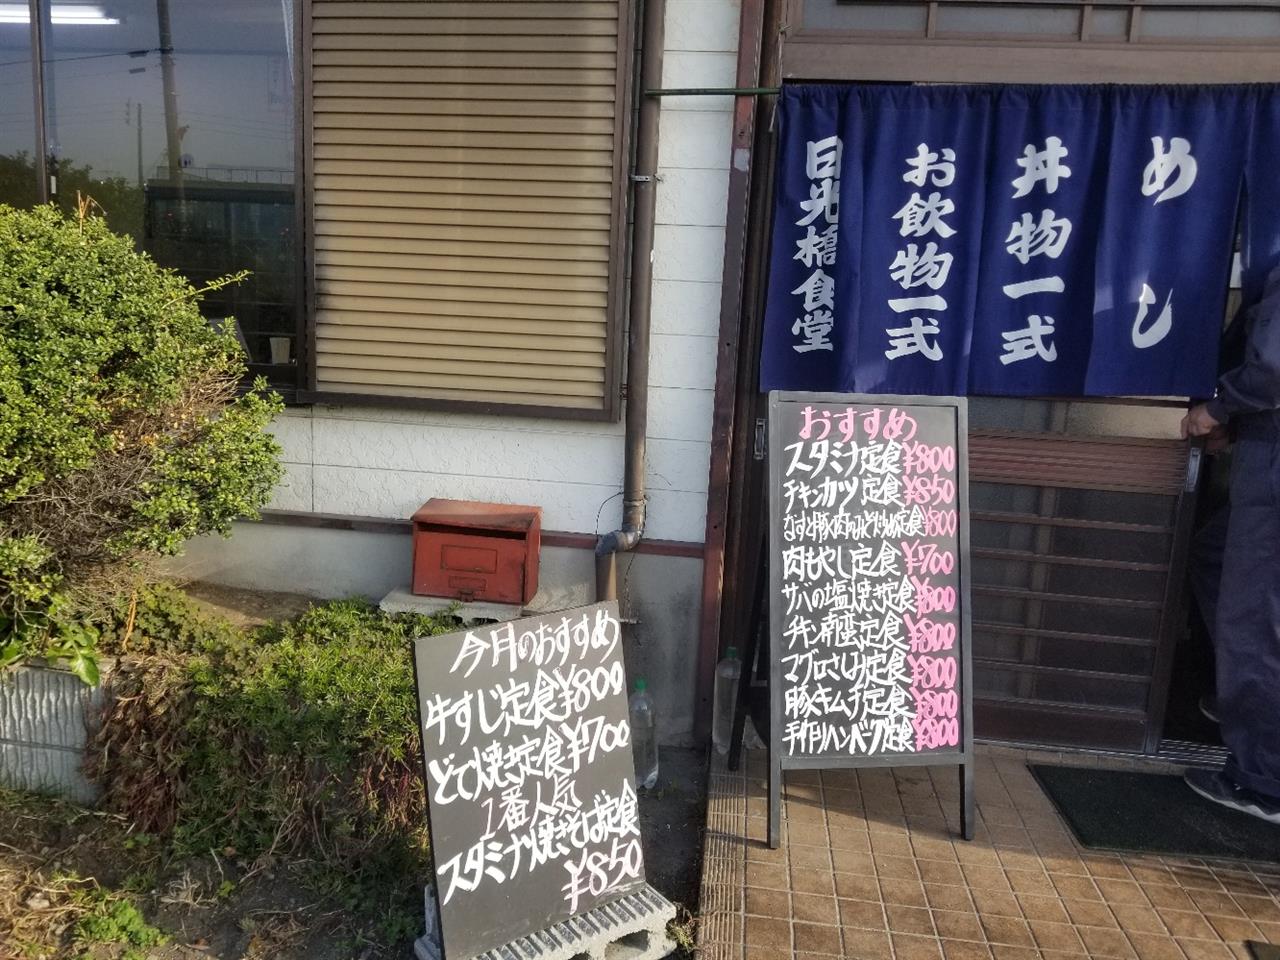 めし
丼物一式
お飲物一式
日光橋食堂
おすすめ
スタミナ定食¥800
チキンカツ定食¥850
なすと豚肉のみそ炒め定食¥800
肉もやし定食¥700
サバの塩焼き定食¥800
チキン南蛮定食¥800
マグロさしみ定食¥800
豚キムチ定食¥800
手作りハンバーグ定食¥800
今月のおすすめ
牛すじ定食¥800
どて焼き定食¥700
1番人気
スタミナ焼きそば定食
¥850